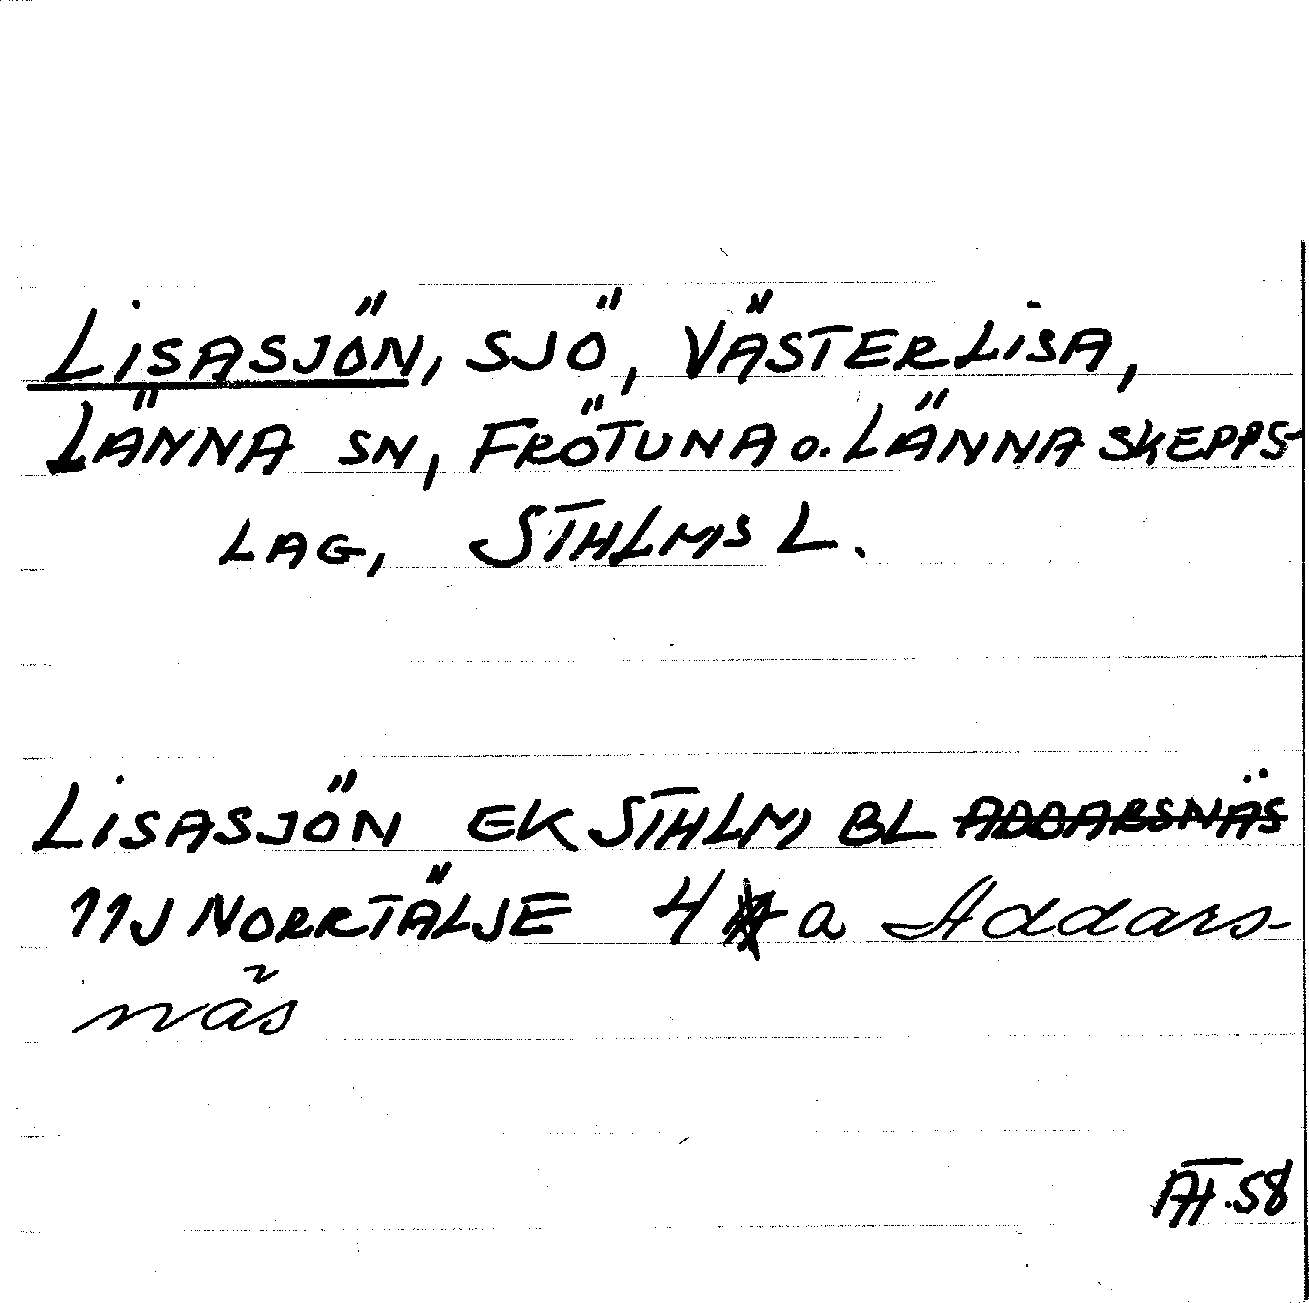 LISASJÖN, SJÖ, VÄSTERLISA,
LÄNNA SN, FRÖTUNA o. LÄNNA SKEPPS-
LAG, STHLMS L.
LISASJÖN EK STHLM BL ADDARSNÄS
11J NORRTÄLJE 4 a Addars-
näs